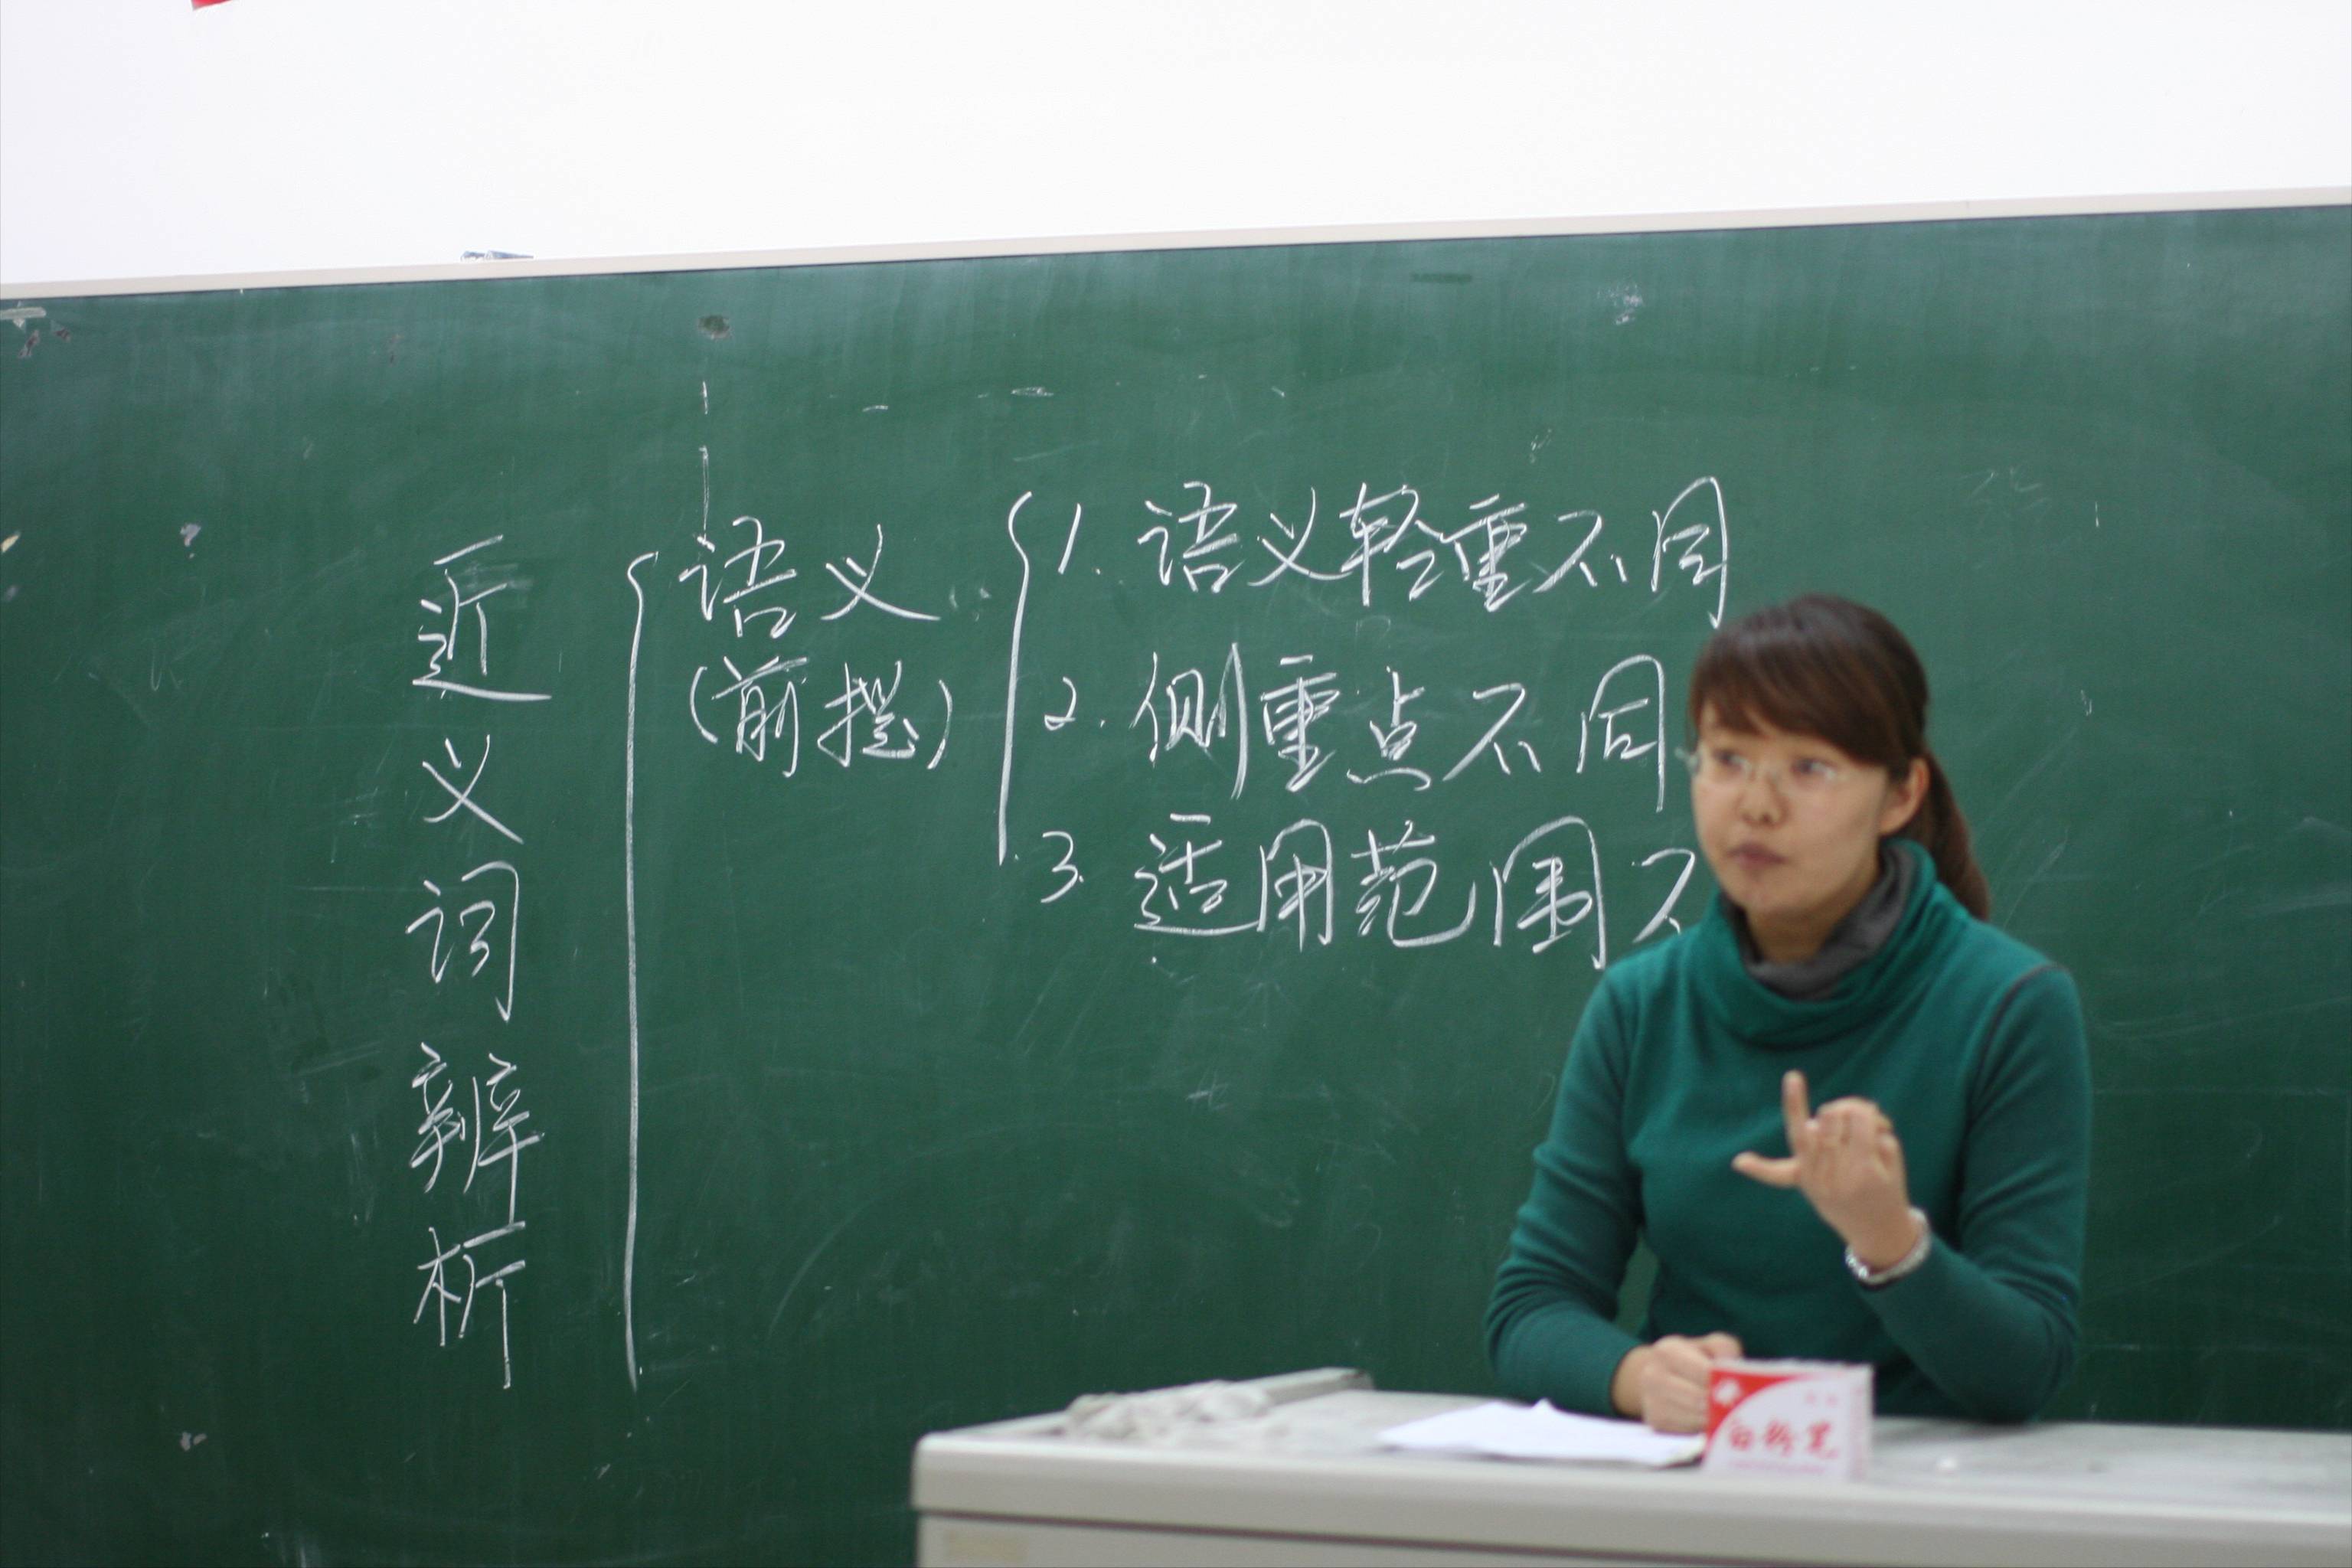 近义词辨析
语义
(前提)
1. 语义轻重不同
2. 侧重点不同
3. 适用范围不
白粉笔